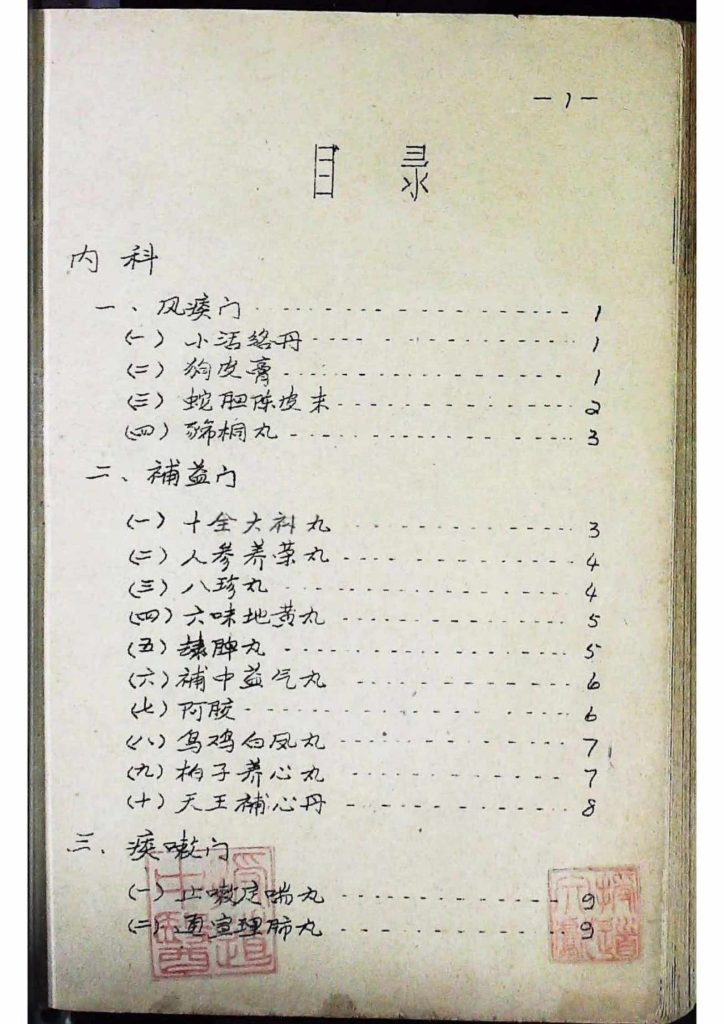 — 1 —
目 录
内 科
一、风痰门 1
(一) 小活络丹 1
(二) 狗皮膏 1
(三) 蛇胆陈皮末 2
(四) 豨桐丸 3
二、補益门
(一) 十全大补丸 3
(二) 人参养荣丸 4
(三) 八珍丸 4
(四) 六味地黄丸 5
(五) 脾丸 5
(六) 補中益气丸 6
(七) 阿胶 6
(八) 乌鸡白凤丸 7
(九) 柏子养心丸 7
(十) 天王補心丹 8
三、痰嗽门
(一) 止嗽定喘丸 9
(二) 宣理肺丸 9
授道
中醫